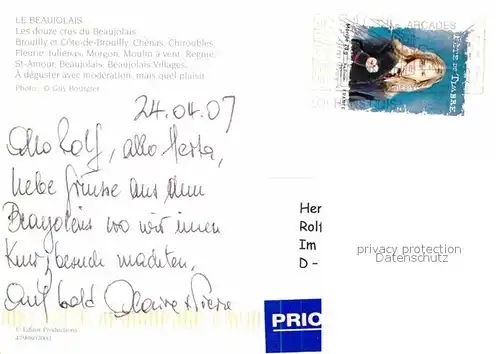 LE BEAUJOLAIS
Les douze crus du Beaujolais
Brouilly et Côte-de-Brouilly, Chénas, Chiroubles,
Fleurie, Juliénas, Morgon, Moulin à vent, Regnié,
St-Amour, Beaujolais, Beaujolais Villages.
A déguster avec modération, mais quel plaisir
Photo : © Guy Bouruet
24.04.07
allo Rolf, allo Herta,
liebe Grüsse aus dem
Beaujolais wo wir einen
Kurzbesuch machten,
bald Claire + Pierre
© Editor Productions
ARCADES
FÊTE DU TIMBRE
FRANCE
Her
Rolf
Im
D -
privacy protection
Datenschutz
PRIO